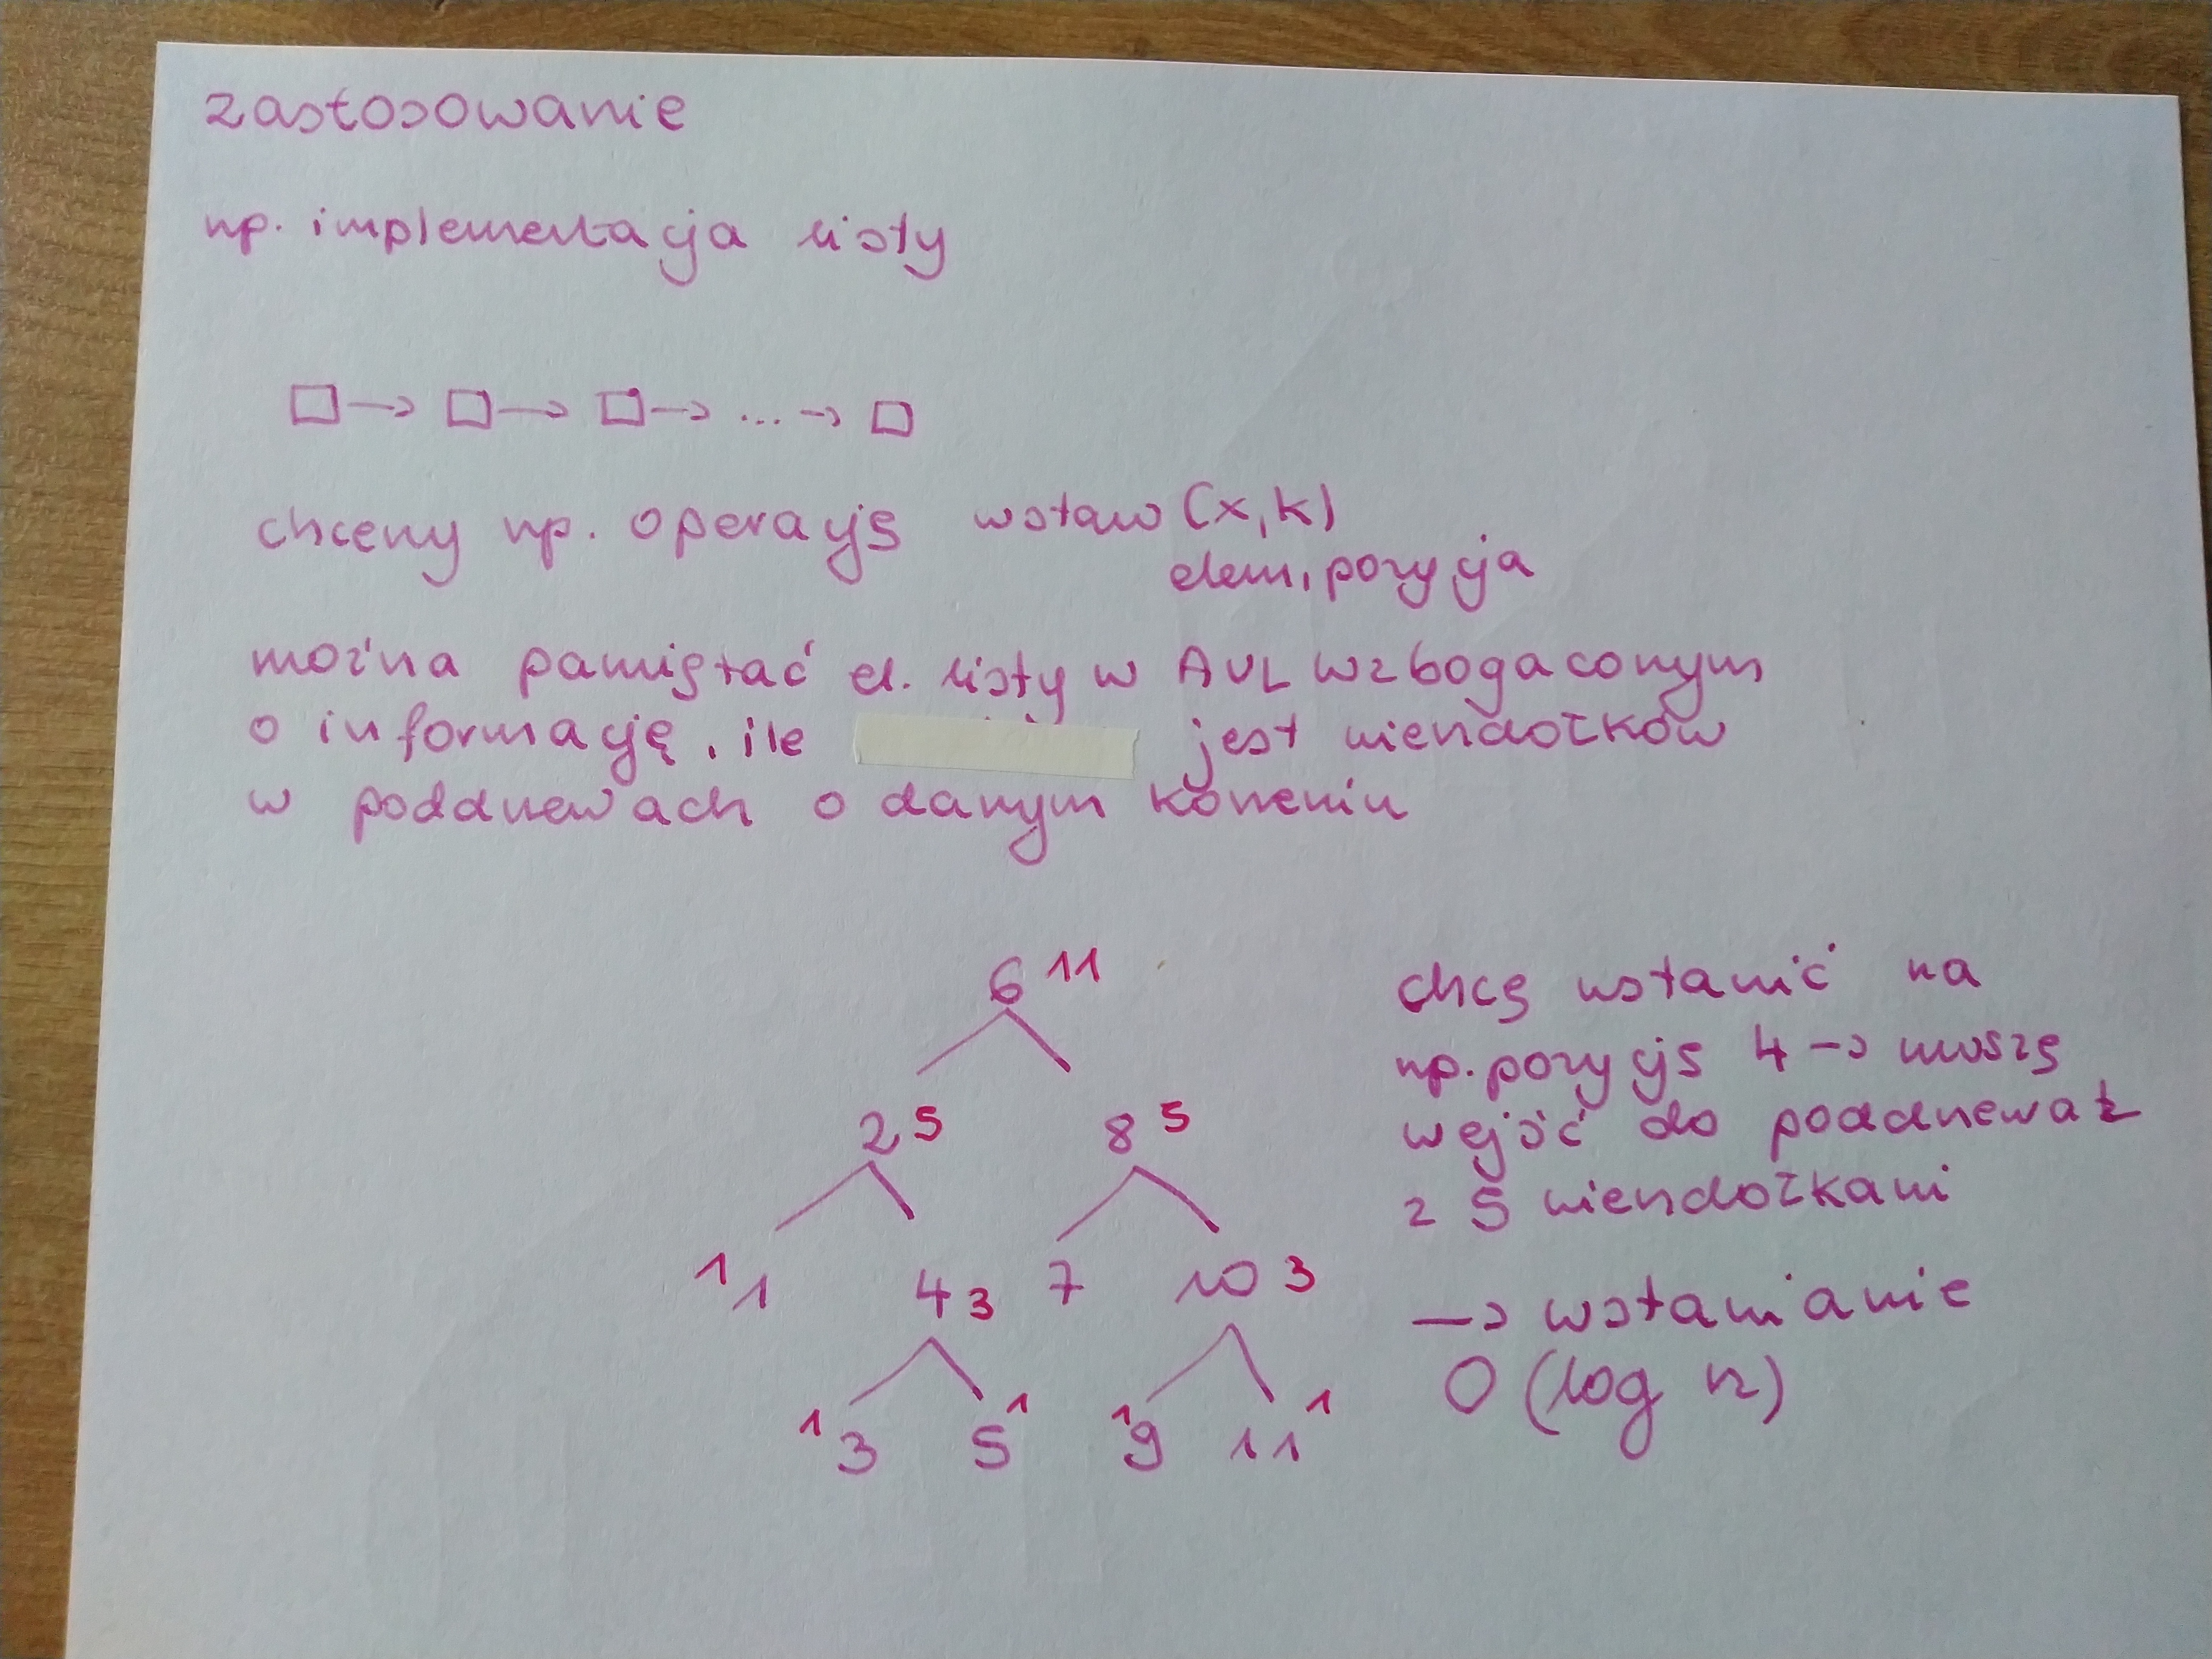 zastosowanie
np. implementacja listy
□ → □ → □ → ... → □
chcemy np. operację wstaw (x, k)
elem, pozycja
można pamiętać el. listy w AVL wzbogaconym
o informację, ile jest wierzchołków
w poddrzewach o danym korzeniu
6 11
2 5 8 5
1 1 4 3 7 10 3
1 3 5 1 1 9 11 1
chcę wstawić na
np. pozycję 4 → muszę
wejść do poddrzewa
z 5 wierzchołkami
→ wstawianie
O (log n)